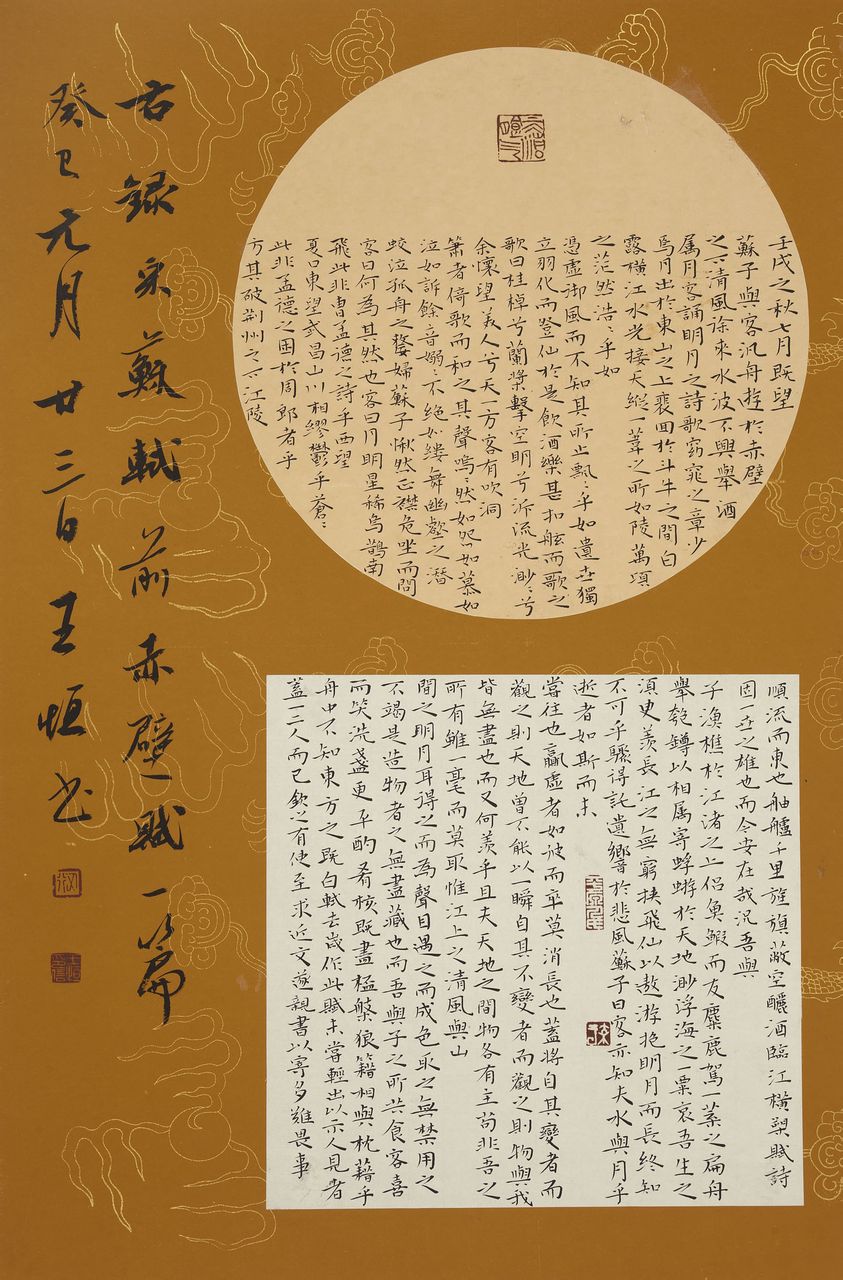 壬戌之秋七月既望
蘇子與客汎舟遊於赤壁
之下清風徐來水波不興舉酒
属月客誦明月之詩歌窈窕之章少
焉月出於東山之上裵回於斗牛之間白
露橫江水光接天縱一葦之所如陵萬頃
之茫然浩〻乎如
憑虛御風而不知其所止飄〻乎如遺世獨
立羽化而登仙於是飲酒樂甚扣舷而歌之
歌曰桂棹兮蘭槳擊空明兮泝流光渺〻兮
余懷望美人兮天一方客有吹洞
簫者倚歌而和之其聲嗚〻然如怨如慕如
泣如訴餘音嫋〻不絕如縷舞幽壑之潛
蛟泣孤舟之嫠婦蘇子愀然正襟危坐而問
客曰何為其然也客曰月明星稀烏鵲南
飛此非曹孟德之詩乎西望
夏口東望武昌山川相繆鬱乎蒼〻
此非孟德之困於周郎者乎
方其破荆州下江陵
順流而東也舳艫千里旌旗蔽空釃酒臨江橫槊賦詩
固一世之雄也而今安在哉況吾與
子漁樵於江渚之上侶魚鰕而友麋鹿駕一葉之扁舟
舉匏罇以相属寄蜉蝣於天地渺浮海之一粟哀吾生之
須臾羨長江之無窮挟飛仙以遨游抱明月而長終知
不可乎驟得託遺響於悲風蘇子曰客亦知夫水與月乎
逝者如斯而未
嘗往也贏虛者如彼而卒莫消長也蓋將自其變者而
觀之則天地曾不能以一瞬自其不變者而觀之則物與我
皆無盡也而又何羨乎且夫天地之間物各有主苟非吾之
所有雖一毫而莫取惟江上之清風與山
間之明月耳得之而為聲目遇之而成色取之無禁用之
不竭是造物者之無盡藏也而吾與子之所共食客喜
而笑洗盞更酌肴核既盡杯盤狼籍相與枕藉乎
舟中不知東方之既白軾去歲作此賦未嘗輕出以示人見者
蓋一二人而已欽之有使至求近文遂親書以寄多難畏事
右録宋蘇軾前赤壁賦一篇
癸巳元月廿三日王恒書